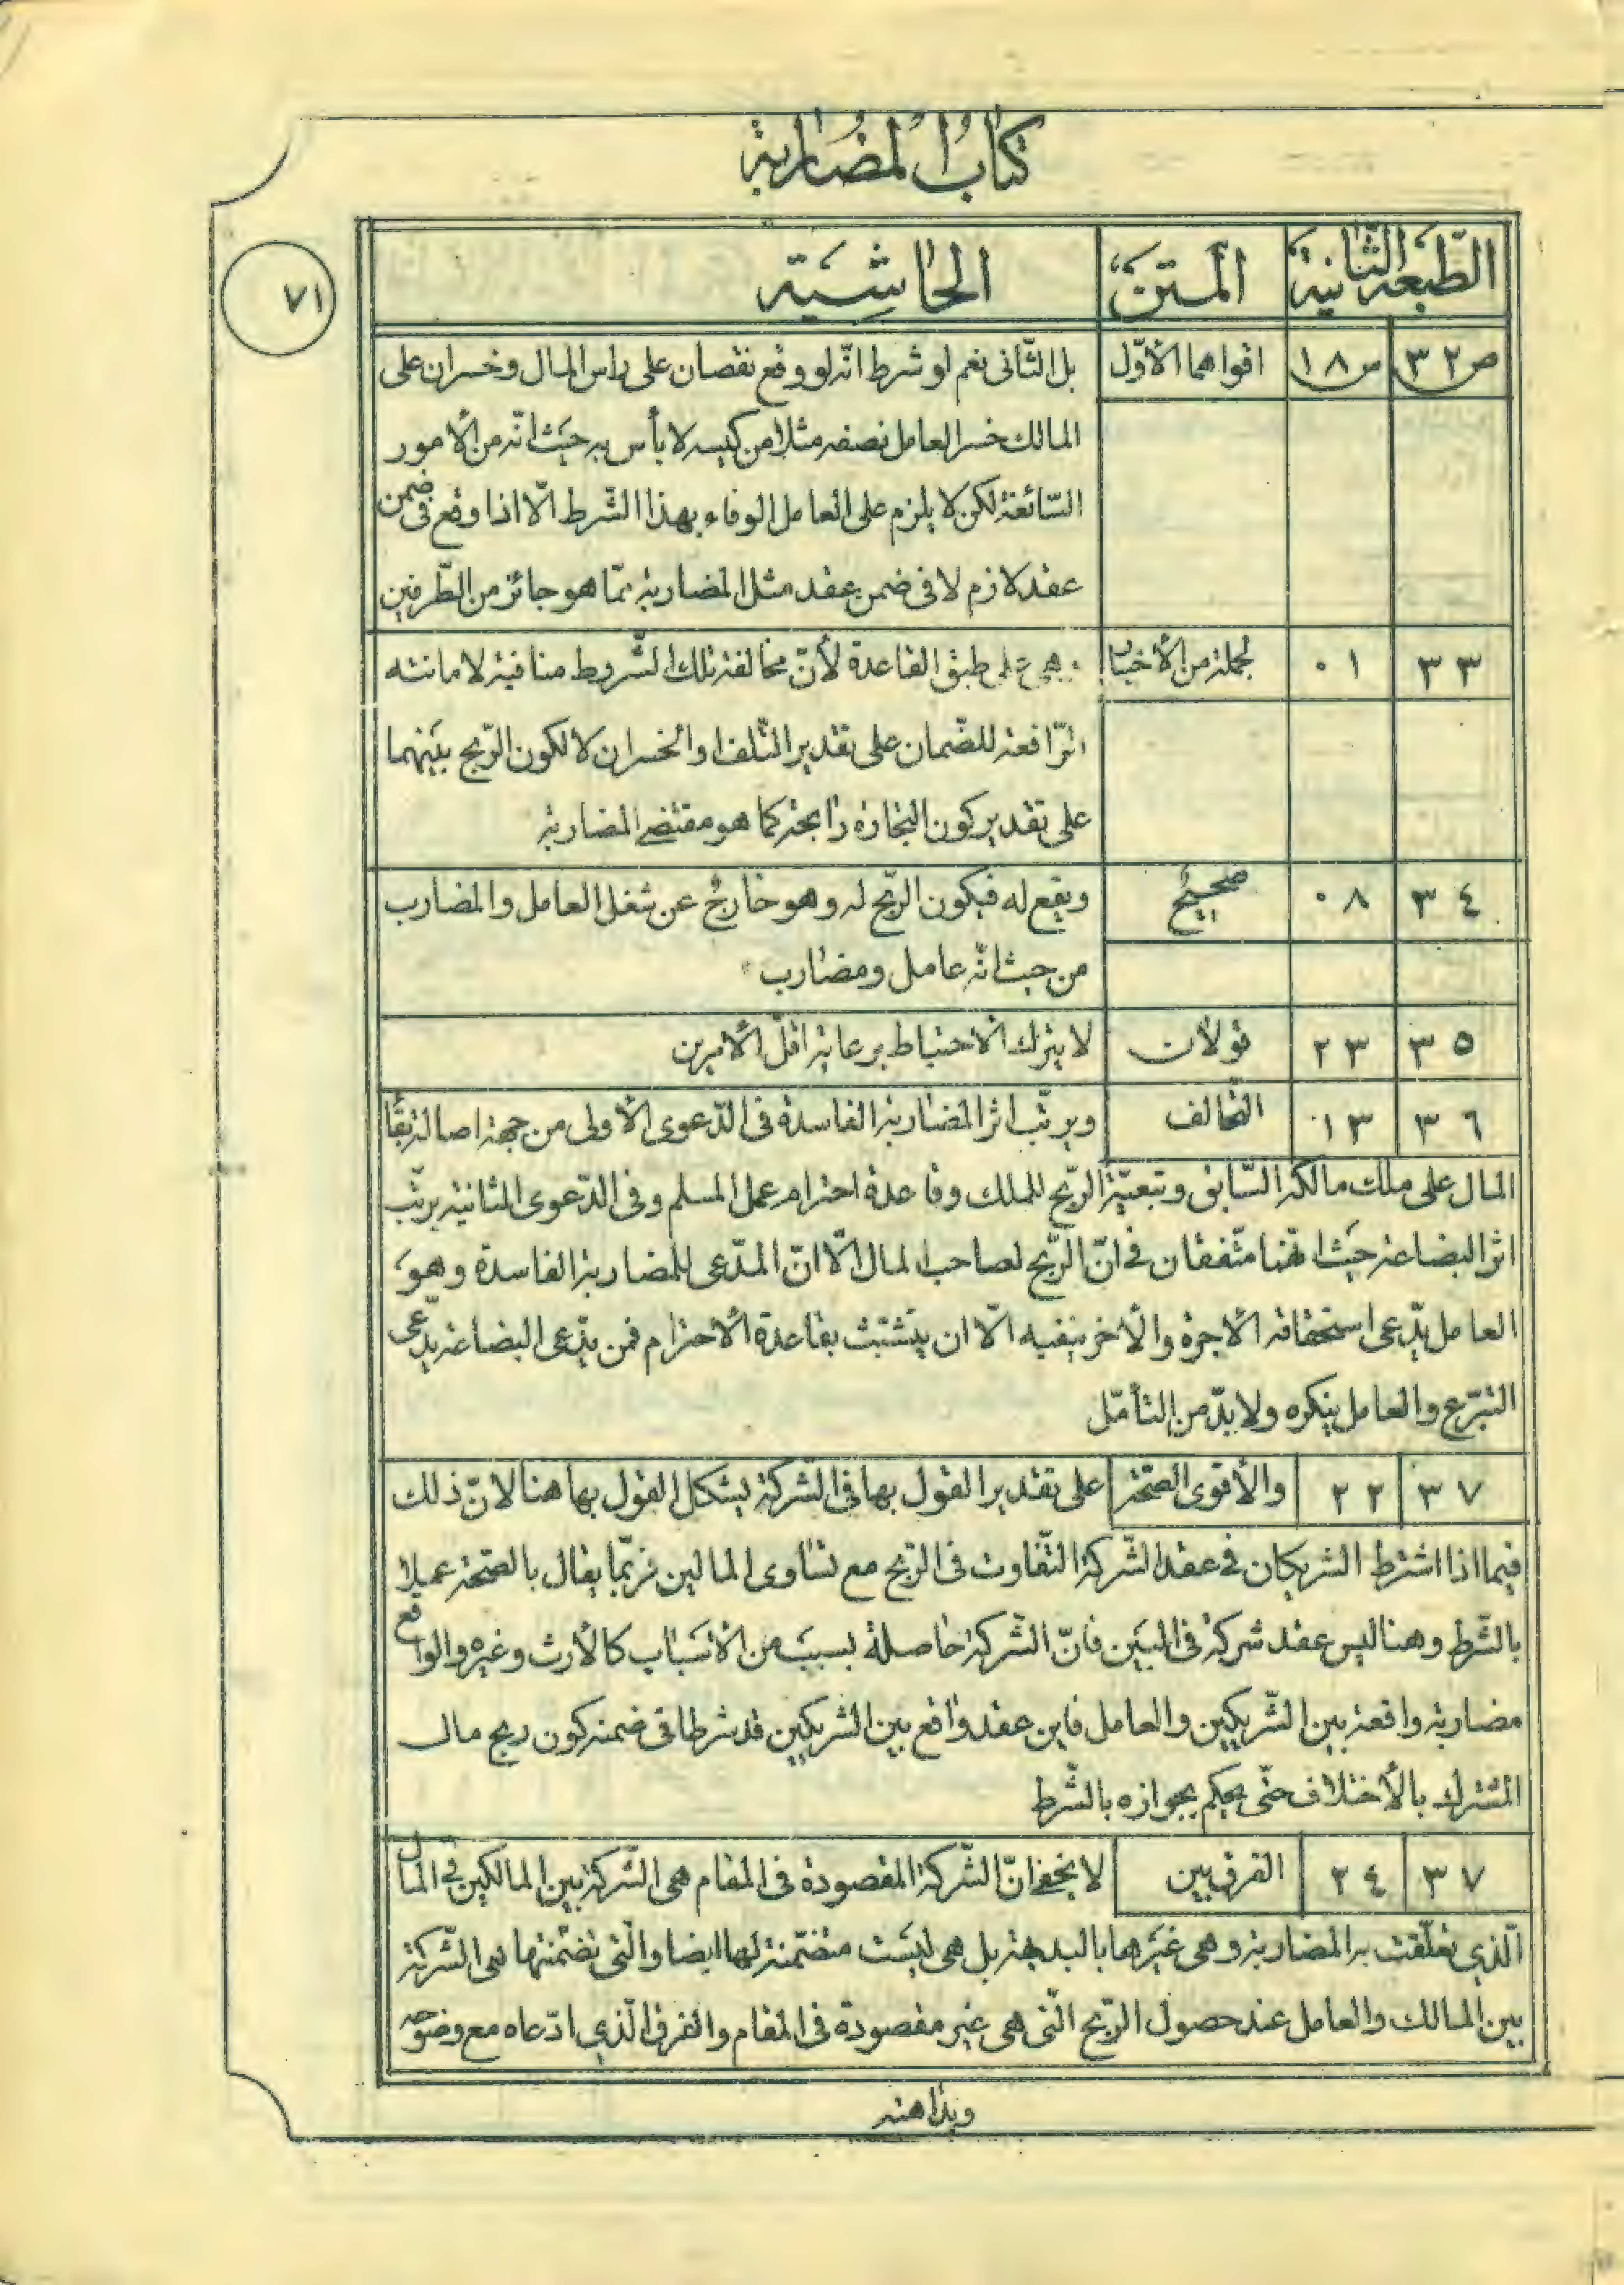 كتاب المضاربة
٧١
الطّبعة الثّانية المتن الحاشية
ص ٣٢ س ١٨ اقواهما الأوّل بل الثّانى نعم لو شرط انّه لو وقع نقصان على راس المال وخسران على
المالك خسر العامل نصفه مثلا من كيسه لا بأس به حيث انّه من الأمور
السّائغة لكن لا يلزم على العامل الوفاء بهذا الشّرط الّا اذا وقع فى ضمن
عقد لازم لا فى ضمن عقد مثل المضاربة ممّا هو جائز من الطّرفين
٣٣ ٠١ لجملة من الأخبار وهى على طبق القاعدة لأنّ مخالفة تلك الشّروط منافية لامانته
الرّافعة للضّمان على تقدير التّلف او الخسران لا لكون الرّبح بينهما
على تقدير كون التجارة رابحة كما هو مقتضى المضاربة
٣٤ ٠٨ صحيح ويقع له فيكون الرّبح له وهو خارج عن شغل العامل والمضارب
من حيث انّه عامل ومضارب
٣٥ ٢٣ قولان لا يترك الأحتياط برعاية اقلّ الأمرين
٣٦ ١٣ التّحالف ويرتّب اثر المضاربة الفاسدة فى الدّعوى الأولى من جهة اصالة بقاء
المال على ملك مالكه السّابق وتبعيّة الرّبح للملك وقاعدة احترام عمل المسلم وفى الدّعوى الثانية يرتّب
اثر البضاعة حيث انّهما متّفقان فى انّ الرّبح لصاحب المال الّا انّ المدّعى للمضاربة الفاسدة وهو
العامل يدّعى استحقاقه الأجرة والأخر ينفيه الّا ان يتشبّث بقاعدة الأحترام فمن يدّعى البضاعة يدّعى
التّبرّع والعامل ينكره ولا بدّ من التأمّل
٣٧ ٢٢ والأقوى الصّحّة على تقدير القول بها فى الشّركة يشكل القول بها هنا لانّ ذلك
فيما اذا اشترط الشريكان فى عقد الشّركة التّفاوت فى الرّبح مع تساوى المالين فربّما يقال بالصّحّة عملا
بالشّرط وهنا ليس عقد شركة فى البين فانّ الشّركة حاصلة بسبب من الأسباب كالأرث وغيره والواقع
مضاربة واقعة بين الشّريكين والعامل فاين عقد واقع بين الشريكين قد شرطا فى ضمنه كون ربح مال
المشترك بالأختلاف حتّى يحكم بجوازه بالشّرط
٣٧ ٢٤ الفرق بين لا يخفى انّ الشّركة المقصودة فى المقام هى الشّركة بين المالكين فى المال
الّذي تعلّقت به المضاربة وهى غيرها بالبديهة بل هى ليست متضمّنة لها ايضا والّتى تضمّنتها هى الشّركة
بين المالك والعامل عند حصول الرّبح الّتى هى غير مقصودة فى المقام والفرق الّذي ادّعاه مع وضوحه
وبداهته